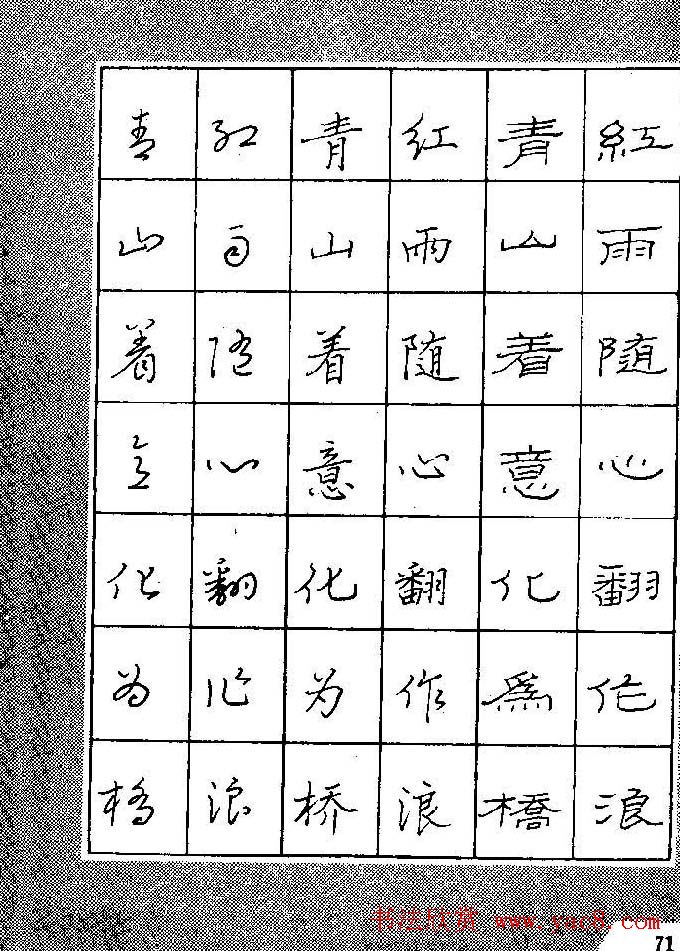 紅雨随心翻作浪
青山着意化為橋
红雨随心翻作浪
青山着意化为桥
红雨随心翻作浪
青山着意化为桥
书法欣赏 www.yac8.com
71